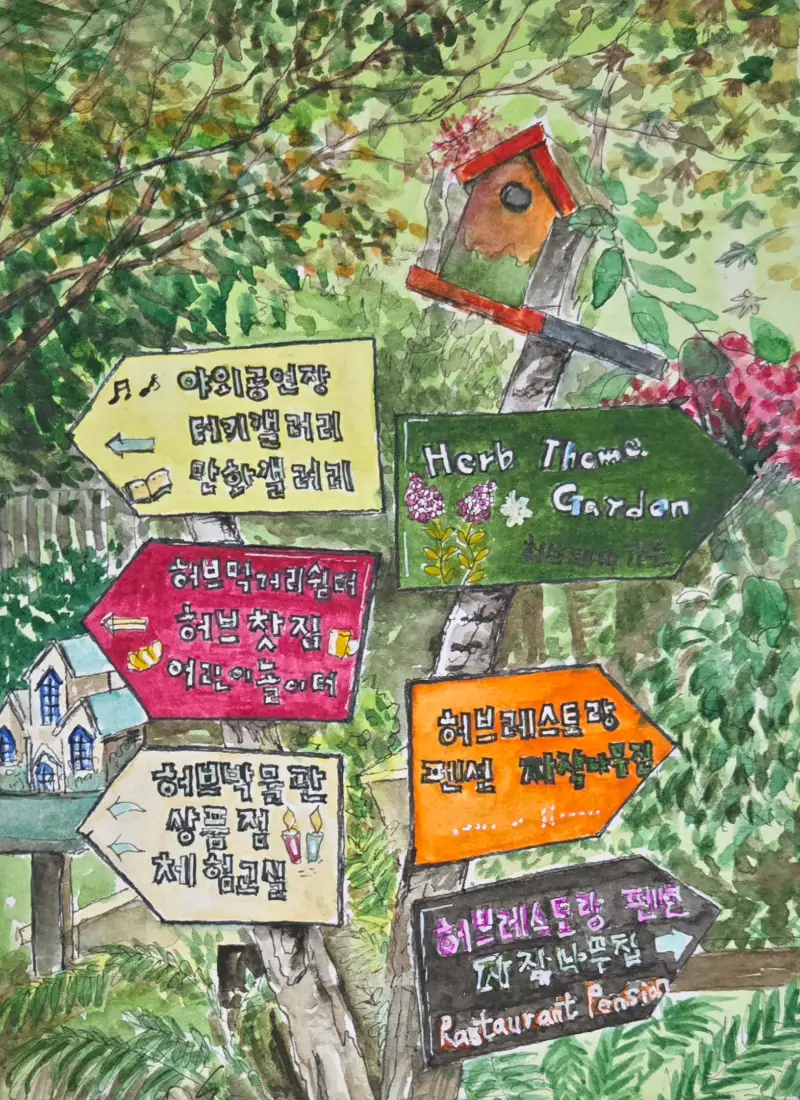 야외공연장
터키갤러리
만화갤러리
Herb Theme
Garden
허브테마가든
허브먹거리쉼터
허브찻집
어린이놀이터
허브레스토랑
펜션 자작나무집
허브박물관
상품점
체험교실
허브레스토랑 펜션
자작나무집
Restaurant Pension